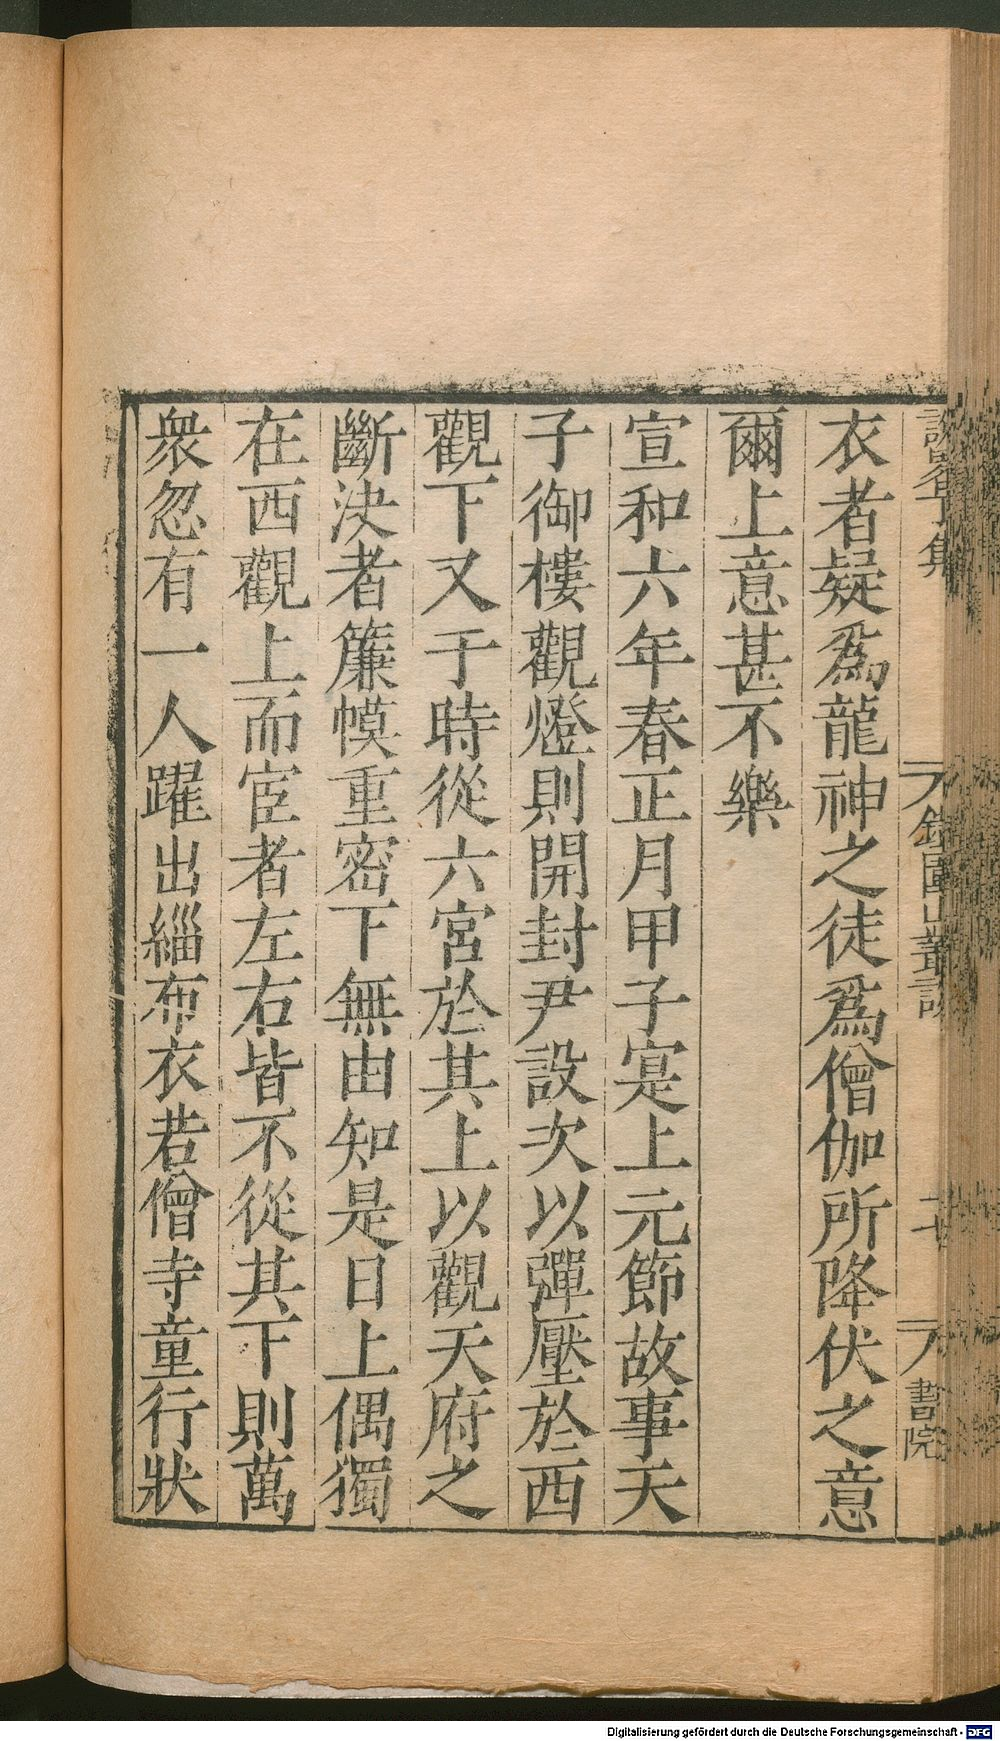 衣者疑爲龍神之徒爲僧伽所降伏之意
爾上意甚不樂
宣和六年春正月甲子寔上元節故事天
子御樓觀燈則開封尹設次以彈壓於西
觀下又于時從六宮於其上以觀天府之
斷決者簾幙重密下無由知是日上偶獨
在西觀上而宦者左右皆不從其下則萬
衆忽有一人躍出緇布衣若僧寺童行狀
書院
Digitalisierung gefördert durch die Deutsche Forschungsgemeinschaft - DFG